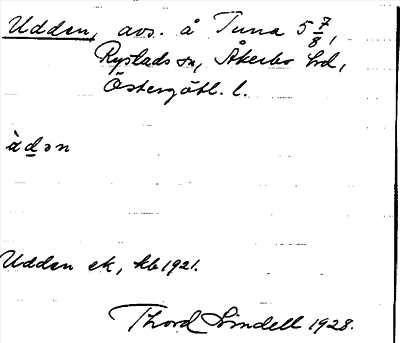 Udden, avs. å Tuna 5 7/8,
Rystads sn, Åkerbo hd,
Östergötl. l.
ùdən
Udden ek, kb 1921.
Thord Lindell 1928.